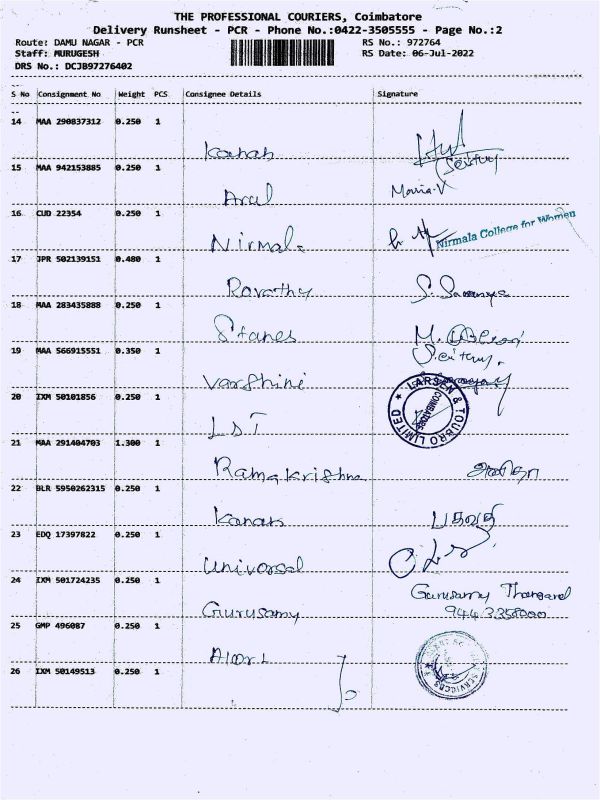 THE PROFESSIONAL COURIERS, Coimbatore
Delivery Runsheet - PCR - Phone No.:0422-3505555 - Page No.:2
Route: DAMU NAGAR - PCR RS No.: 972764
Staff: MURUGESH RS Date: 06-Jul-2022
DRS No.: DCJB97276402
S No Consignment No Weight PCS Consignee Details Signature
14 MAA 290837312 0.250 1
Kanan
15 MAA 942153885 0.250 1
Arul Maria.V
16 CUD 22354 0.250 1
Nirmala Nirmala College for Women
17 JPR 502139151 0.480 1
Revathy S. Saranya
18 MAA 283435888 0.250 1
Stanes
19 MAA 566915551 0.350 1
Varshini
20 IXM 50101856 0.250 1
L&T LARSEN & TOUBRO LIMITED COIMBATORE
21 MAA 291404703 1.300 1
Ramakrishna
22 BLR 5950262315 0.250 1
Kanan
23 EDQ 17397822 0.250 1
Universal
24 IXM 501724235 0.250 1
Gurusamy Gurusamy
25 GMP 496087 0.250 1
26 IXM 50149513 0.250 1